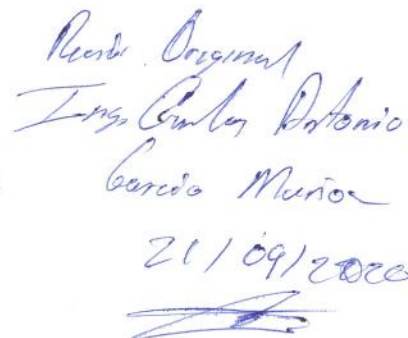 Recibí Original
Ing. Carlos Antonio
García Muñoz
21/09/2020